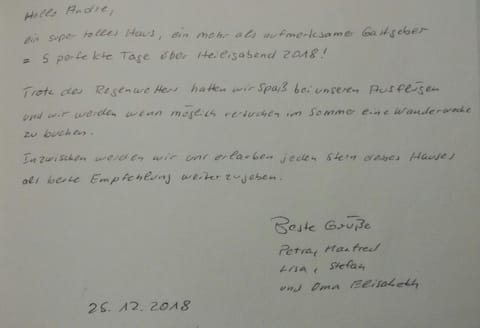 Hallo Andre,
ein super tolles Haus, ein mehr als aufmerksamer Gastgeber
= 5 perfekte Tage über Heiligabend 2018!
Trotz des Regenwetters hatten wir Spaß bei unseren Ausflügen
und wir werden wenn möglich versuchen im Sommer eine Wanderwoche
zu buchen.
Inzwischen werden wir uns erlauben jeden Stern dieses Hauses
als beste Empfehlung weiterzugeben.
Beste Grüße
Petra, Manfred
Lisa, Stefan
und Oma Elisabeth
26.12.2018